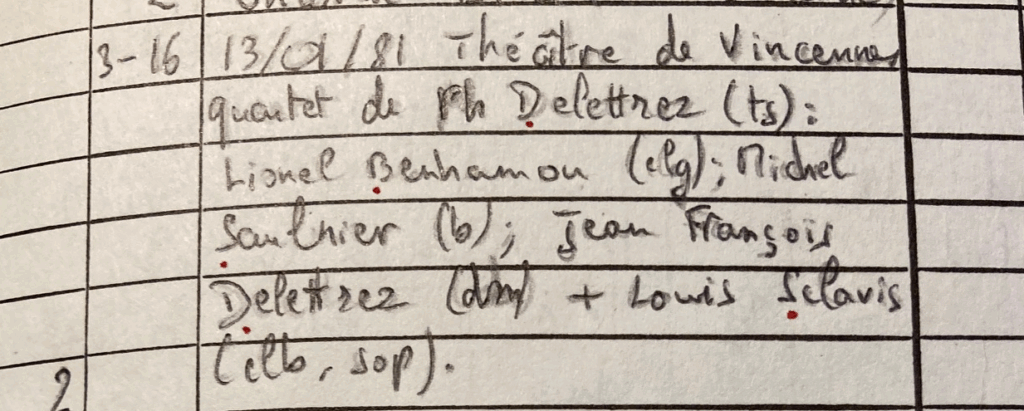 3-16 13/01/81 Théâtre de Vincennes
quartet de Ph Delettrez (ts):
Lionel Benhamou (elg); Michel
Saulnier (b); Jean François
Delettrez (dm) + Louis Sclavis
(clb, sop).
2